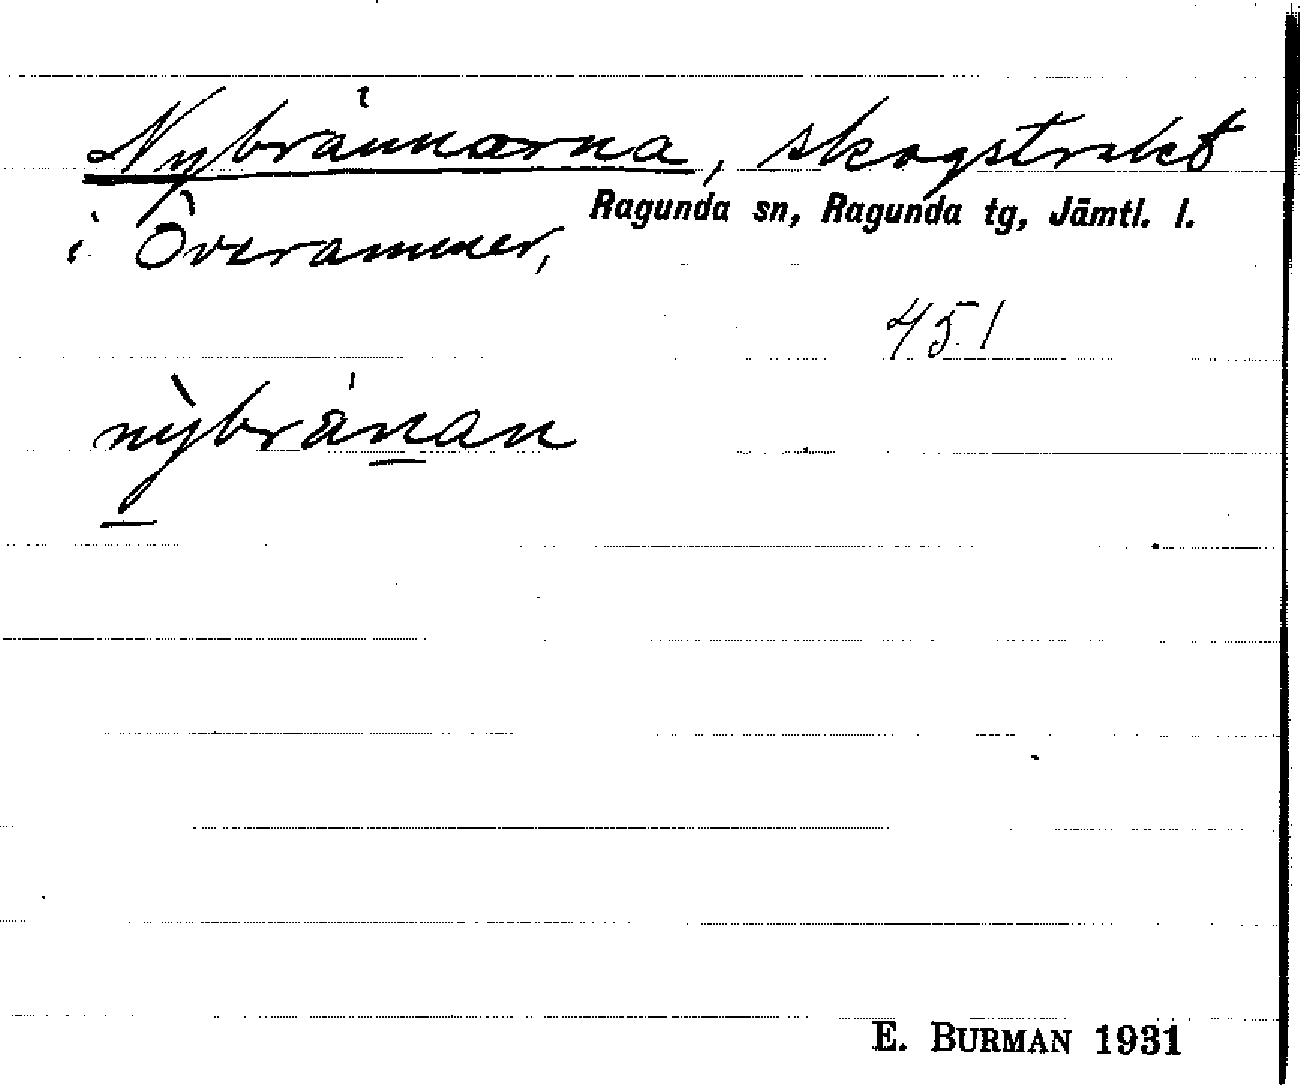 Nybrännorna, skogstrakt
Ragunda sn, Ragunda tg, Jämtl. l.
i Överammer,
451
nỳbränan
E. BURMAN 1931